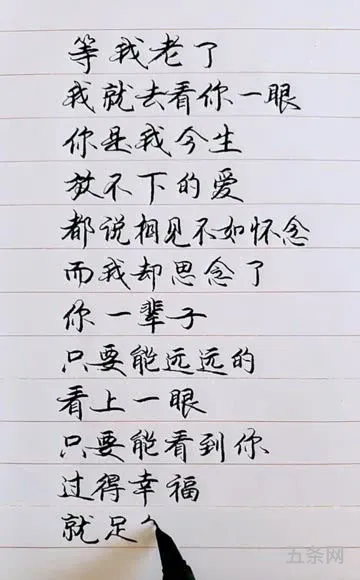 等我老了
我就去看你一眼
你是我今生
放不下的爱
都说相见不如怀念
而我却思念了
你一辈子
只要能远远的
看上一眼
只要能看到你
过得幸福
就足
五条网